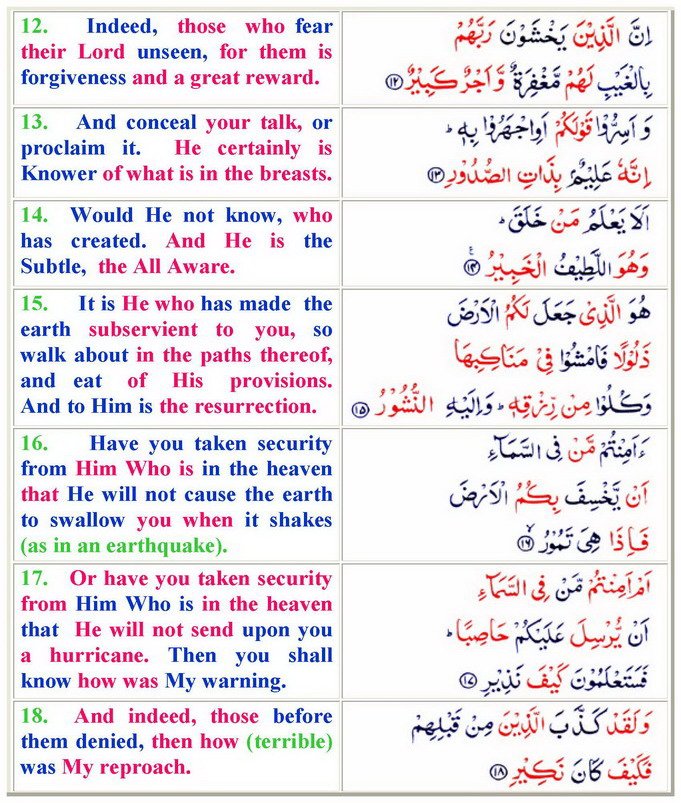 12. Indeed, those who fear
their Lord unseen, for them is
forgiveness and a great reward.
اِنَّ الَّذِيْنَ يَخْشَوْنَ رَبَّهُمْ
بِالْغَيْبِ لَهُمْ مَّغْفِرَةٌ وَّاَجْرٌ كَبِيْرٌ ۝۱۲
13. And conceal your talk, or
proclaim it. He certainly is
Knower of what is in the breasts.
وَ اَسِرُّوْا قَوْلَكُمْ اَوِاجْهَرُوْا بِهٖ ؕ
اِنَّهٗ عَلِيْمٌۢ بِذَاتِ الصُّدُوْرِ ۝۱۳
14. Would He not know, who
has created. And He is the
Subtle, the All Aware.
اَلَا يَعْلَمُ مَنْ خَلَقَ ؕ
وَهُوَ اللَّطِيْفُ الْخَبِيْرُ ۝۱۴
15. It is He who has made the
earth subservient to you, so
walk about in the paths thereof,
and eat of His provisions.
And to Him is the resurrection.
هُوَ الَّذِيْ جَعَلَ لَكُمُ الْاَرْضَ
ذَلُوْلًا فَامْشُوْا فِيْ مَنَاكِبِهَا
وَكُلُوْا مِنْ رِّزْقِهٖ ؕ وَاِلَيْهِ النُّشُوْرُ ۝۱۵
16. Have you taken security
from Him Who is in the heaven
that He will not cause the earth
to swallow you when it shakes
(as in an earthquake).
ءَاَمِنْتُمْ مَّنْ فِي السَّمَآءِ
اَنْ يَّخْسِفَ بِكُمُ الْاَرْضَ
فَاِذَا هِيَ تَمُوْرُ ۝۱۶
17. Or have you taken security
from Him Who is in the heaven
that He will not send upon you
a hurricane. Then you shall
know how was My warning.
اَمْ اَمِنْتُمْ مَّنْ فِي السَّمَآءِ
اَنْ يُّرْسِلَ عَلَيْكُمْ حَاصِبًا ؕ
فَسَتَعْلَمُوْنَ كَيْفَ نَذِيْرِ ۝۱۷
18. And indeed, those before
them denied, then how (terrible)
was My reproach.
وَلَقَدْ كَذَّبَ الَّذِيْنَ مِنْ قَبْلِهِمْ
فَكَيْفَ كَانَ نَكِيْرِ ۝۱۸